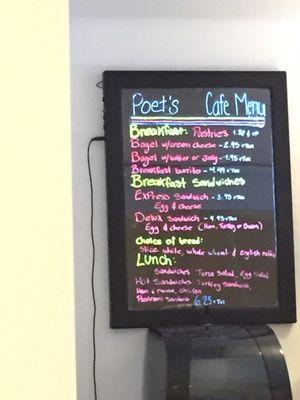 Poet's Cafe Menu
Breakfast: Pastries 1.50 & up
Bagel w/cream cheese - 2.95 +tax
Bagel w/butter or Jelly - 1.95 +tax
Breakfast burrito - 4.99 +tax
Breakfast Sandwiches
Express Sandwich - 3.95 +tax
Egg & cheese
Delux Sandwich - 4.95 +tax
Egg & cheese (Ham, Turkey or Bacon)
Choice of bread:
Slice white, whole wheat & english muffin
Lunch:
Sandwiches Tuna Salad, Egg Salad
Hot Sandwiches Turkey Sandwich,
Ham & cheese, chicken
Pastrami Sandwich 6.25 + tax